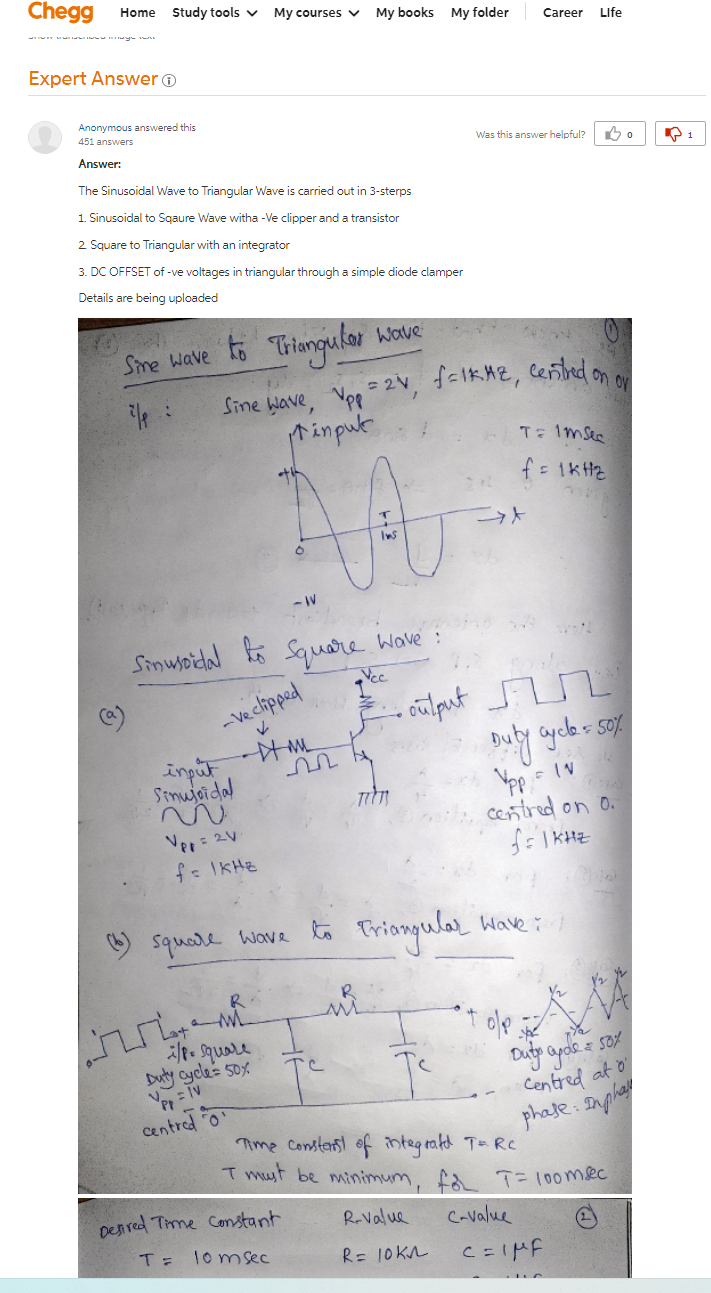 Chegg Home Study tools My courses My books My folder Career LIfe
Expert Answer
Anonymous answered this
451 answers
Was this answer helpful? 0 1
Answer:
The Sinusoidal Wave to Triangular Wave is carried out in 3-sterps
1. Sinusoidal to Sqaure Wave witha -Ve clipper and a transistor
2. Square to Triangular with an integrator
3. DC OFFSET of -ve voltages in triangular through a simple diode clamper
Details are being uploaded
Sine wave to Triangular wave
i/p : Sine wave, Vpp = 2V, f=1KHZ, centred on
input
T= 1msec
f= 1KHZ
T
1ms
t
0
-1V
Sinusoidal to Square Wave :
(a)
-ve clipped
Vcc
output
input
Sinusoidal
Vpp = 2V
f= 1KHZ
Duty cycle= 50%
Vpp = 1V
centred on 0.
f= 1KHZ
(b) Square wave to Triangular wave:
R
R
C
C
i/p= square
Duty cycle= 50%
Vpp = 1V
centred "0"
+ o/p
-
Duty cycle= 50%
centred at '0'
phase: Inphase
Time constant of T= RC
T must be minimum, for T= 100msec
Desired Time Constant R-value C-value 2
T= 10msec R= 10KΩ C=1μF